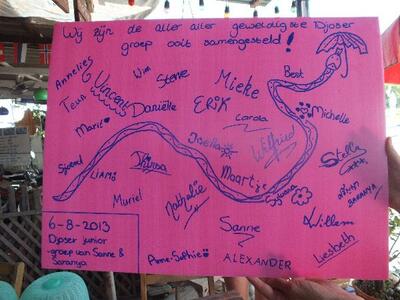 Wij zijn de aller aller geweldigste Djoser
groep ooit samengesteld!
Annelies
Wim
Steve
Mieke
Best
Teun
Vincent
Daniëlle
ERIK
Carola
Michelle
Mario
Wilfried
Sjoerd
LIAM
Thirsa
Maartje
Stella
SARANYA
Muriel
Nathalie
Sanne
Willem
Liesbeth
6-8-2013
Djoser junior
groep van Sanne &
Saranya
Anne-Sophie
ALEXANDER